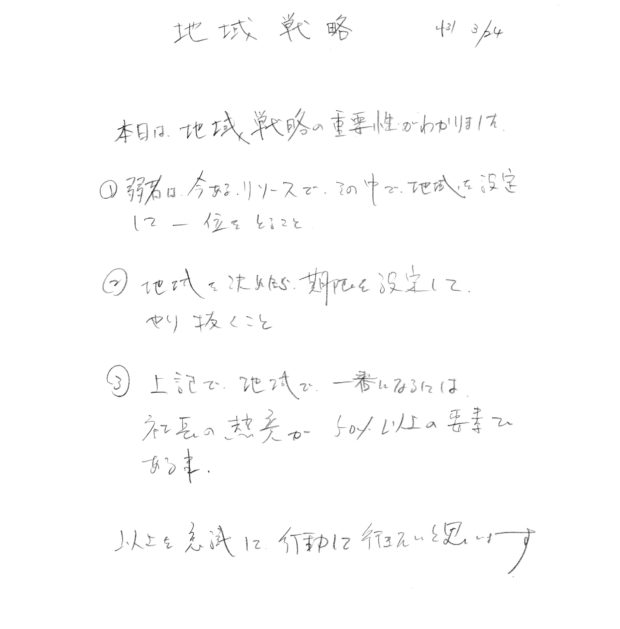 地域戦略 H31 3/24
本日は、地域戦略の重要性がわかりました。
① 弱者は、今ある、リソースで、その中で、地域を設定
して一位をとること
② 地域を決めたら、期限を設定して、
やり抜くこと
③ 上記で、地域で、一番になるには、
社長の熱意が50%以上の要素で
ある事。
以上を意識して、行動して行きたいと思います